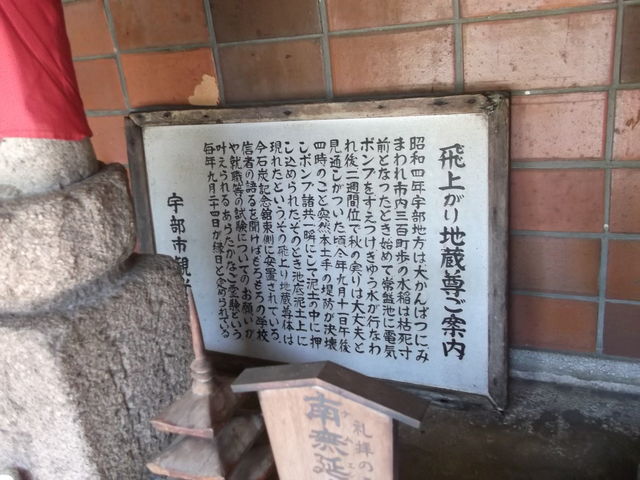 飛上がり地蔵尊ご案内
昭和四年宇部地方は大かんばつにみ
まわれ市内三百町歩の水稲は枯死寸
前となったとき始めて常盤池に電気
ポンプをすえつけきゅう水が行なわ
れ後二週間位で秋の実りは大丈夫と
見通しがついた頃今年九月十一日午後
四時のこと突然本土手の堤防が決壊
しポンプ諸共一瞬にして泥土の中に押
し込められたそのとき池底泥土上に
現れたというその飛上り地蔵尊体は
今石炭記念館東側に安置されている
信者の語るを聞けばもろもろの学校
や就職等の試験についてのお願いが
叶えられるあらたかなご霊験という
毎年九月二十四日が縁日と定められている
宇部市観
南無延
礼拝の